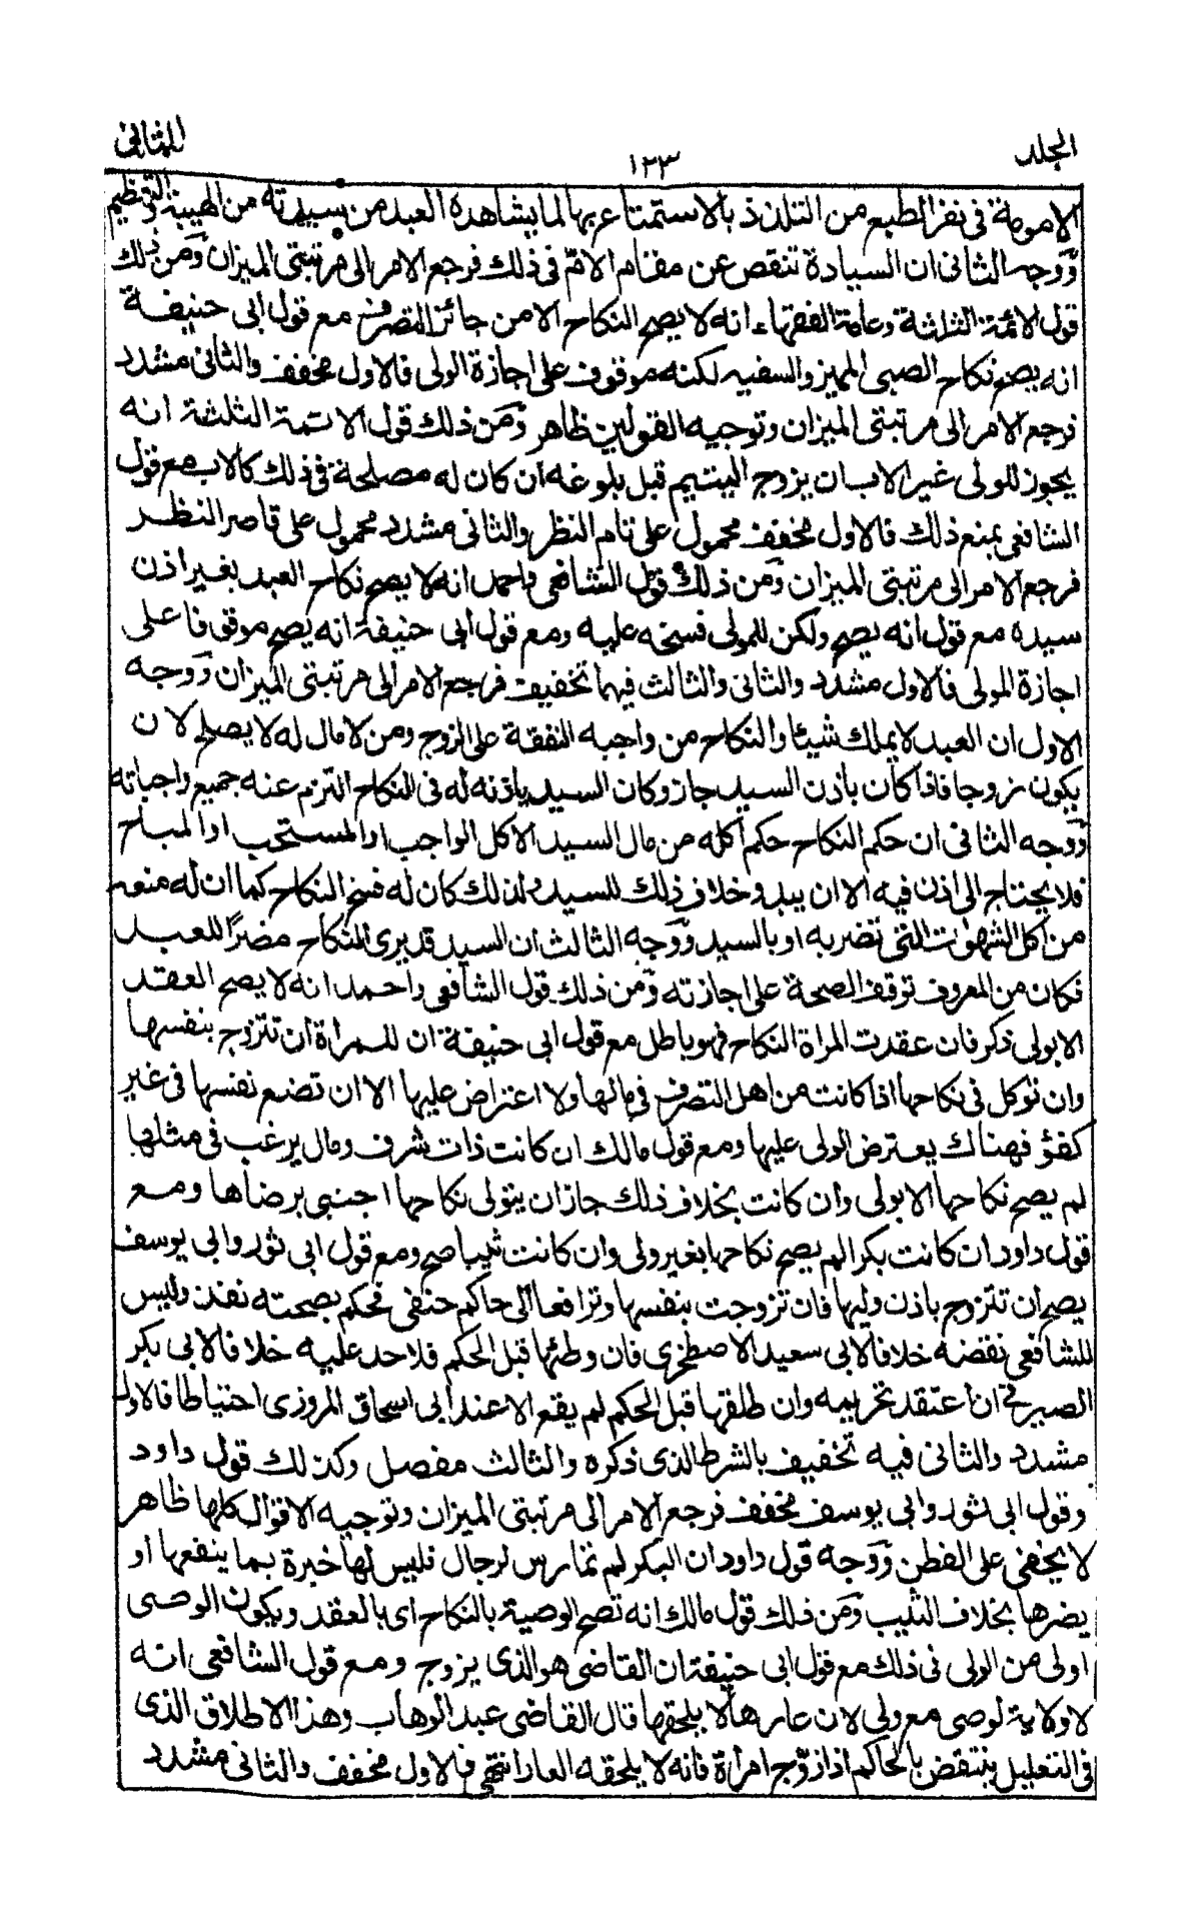 الجلد
١٢٣
الثانى
الامومة فى نفر الطبع من التلذذ بالاستمتاع بها لما يشاهده العبد من سيدته من الهيبة والتعظيم
ووجه الثانى ان السيادة تنقص عن مقام الام فى ذلك فرجع الامر الى مرتبتى الميزان ومن ذلك
قول الائمة الثلاثة وعامة الفقهاء انه لا يصح النكاح الا من جائز التصرف مع قول ابى حنيفة
انه يصح نكاح الصبى المميز والسفيه لكنه موقوف على اجازة الولى فالاول مخفف والثانى مشدد
فرجع الامر الى مرتبتى الميزان وتوجيه القولين ظاهر ومن ذلك قول الائمة الثلثة انه
يجوز للولى غير الاب ان يزوج اليتيم قبل بلوغه ان كان له مصلحة فى ذلك كالاب مع قول
الشافعى بمنع ذلك فالاول مخفف محمول على تام النظر والثانى مشدد محمول على قاصر النظر
فرجع الامر الى مرتبتى الميزان ومن ذلك قول الشافعى واحمد انه لا يصح نكاح العبد بغير اذن
سيده مع قول انه يصح ولكن للمولى فسخه عليه ومع قول ابى حنيفة انه يصح موقوفا على
اجازة المولى فالاول مشدد والثانى والثالث فيهما تخفيف فرجع الامر الى مرتبتى الميزان ووجه
الاول ان العبد لا يملك شيئا والنكاح من واجبه النفقة على الزوج ومن لا مال له لا يصلح لان
يكون زوجا فاذا كان باذن السيد جاز وكان السيد باذنه له فى النكاح التزم عنه جميع واجباته
ووجه الثانى ان حكم النكاح حكم اكله من مال السيد الاكل الواجب او المستحب او المباح
فلا يحتاج الى اذن فيه الا ان يبدو خلاف ذلك للسيد ولذلك كان له فسخ النكاح كما ان له منعه
من اكل الشهوات التى تضر به او بالسيد ووجه الثالث ان السيد قد يرى النكاح مضرا للعبد
فكان من المعروف توقف الصحة على اجازته ومن ذلك قول الشافعى واحمد انه لا يصح العقد
الا بولى ذكر فان عقدت المراة النكاح فهو باطل مع قول ابى حنيفة ان للمراة ان تتزوج بنفسها
وان توكل فى نكاحها اذا كانت من اهل التصرف فى مالها ولا اعتراض عليها الا ان تضع نفسها فى غير
كفؤ فهناك يعترض الولى عليها ومع قول مالك ان كانت ذات شرف ومال يرغب فى مثلها
لم يصح نكاحها الا بولى وان كانت بخلاف ذلك جاز ان يتولى نكاحها اجنبى برضاها ومع
قول داود ان كانت بكرا لم يصح نكاحها بغير ولى وان كانت ثيبا صح ومع قول ابى ثور وابى يوسف
يصح ان تتزوج باذن وليها فان تزوجت بنفسها وترافعا الى حاكم حنفى فحكم بصحته نفذ وليس
للشافعى نقضه خلافا لابى سعيد الاصطخرى فان وطئها قبل الحكم فلا حد عليه خلافا لابى بكر
الصيرفى ان اعتقد تحريمه وان طلقها قبل الحكم لم يقع الا عند ابى اسحاق المروزى احتياطا فالاول
مشدد والثانى فيه تخفيف بالشرط الذى ذكره والثالث مفصل وكذلك قول داود
وقول ابى ثور وابى يوسف مخفف فرجع الامر الى مرتبتى الميزان وتوجيه الاقوال كلها ظاهر
لا يخفى على الفطن ووجه قول داود ان البكر لم تمارس لرجال فليس لها خبرة بما ينفعها او
يضرها بخلاف الثيب ومن ذلك قول مالك انه تصح الوصية بالنكاح اى بالعقد ويكون الوصى
اولى من الولى فى ذلك مع قول ابى حنيفة ان القاضى هو الذى يزوج ومع قول الشافعى انه
لا ولاية لوصى مع ولى لان عارها لا يلحقها قال القاضى عبد الوهاب وهذا الاطلاق الذى
فى التعليل ينتقض بالحاكم اذا زوج امراة فانه لا يلحقه العار انتهى فالاول مخفف والثانى مشدد